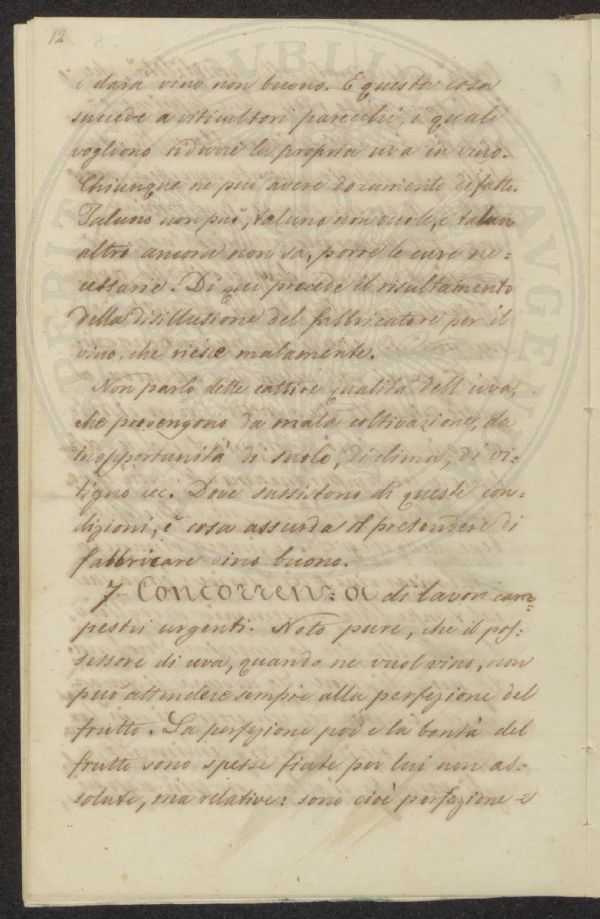 12
i darà vino non buono. E questa cosa
succede a viticultori parecchi, i quali
vogliono ridurre la propria uva in vino.
Chiunque ne può avere documento di fatto.
Taluno non può, taluno non vuole, e talun
altro ancora non sa, porre le cure ne=
cessarie. Di qui procede il risultamento
della disillusione del fabbricatore per il
vino, che riesce malamente.
Non parlo delle cattive qualità dell'uva,
che provengono da mala coltivazione, da
inopportunità di suolo, di clima, di vi=
tigno ec: Dove sussistono di queste con=
dizioni, è cosa assurda il pretendere di
fabbricare vino buono.
7 Concorrenza di lavori cam=
pestri urgenti. Noto pure, che il pos=
sessore di uva, quando ne vuol vino, non
può attendere sempre alla perfezione del
frutto. La perfezione poi e la bontà del
frutto sono spesse fiate per lui non as=
solute, ma relative: sono cioè perfezione e
PERITIA
PVBLICO
AVGENT